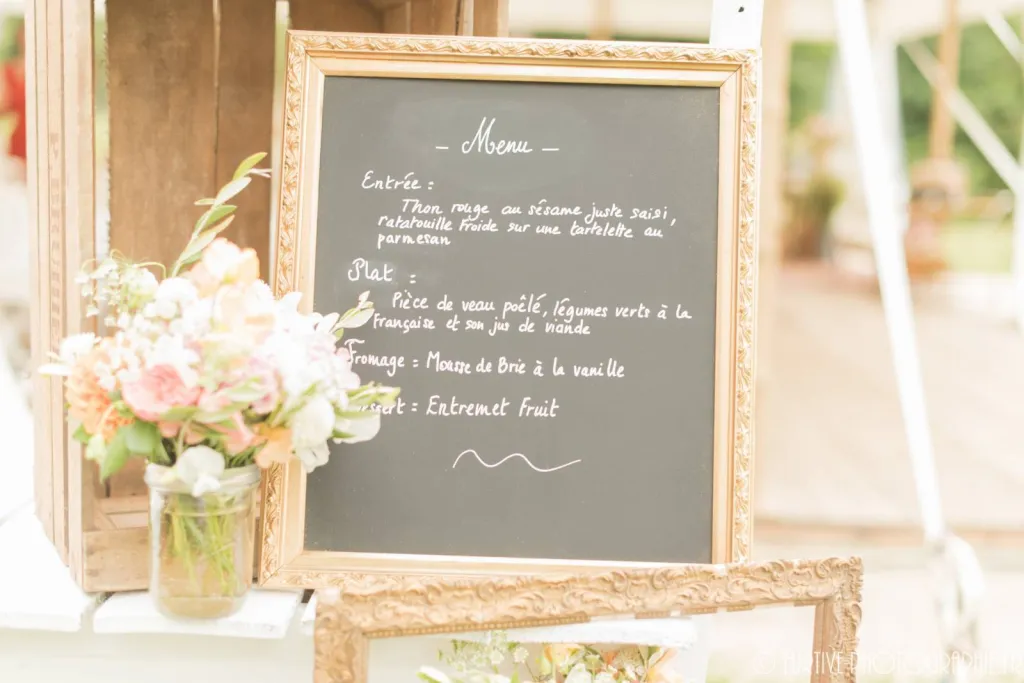 — Menu —
Entrée :
Thon rouge au sésame juste saisi,
ratatouille froide sur une tartelette au
parmesan
Plat :
Pièce de veau poêlé, légumes verts à la
Française et son jus de viande
Fromage : Mousse de Brie à la vanille
ssert : Entremet Fruit
PHOTOGRAPHIE